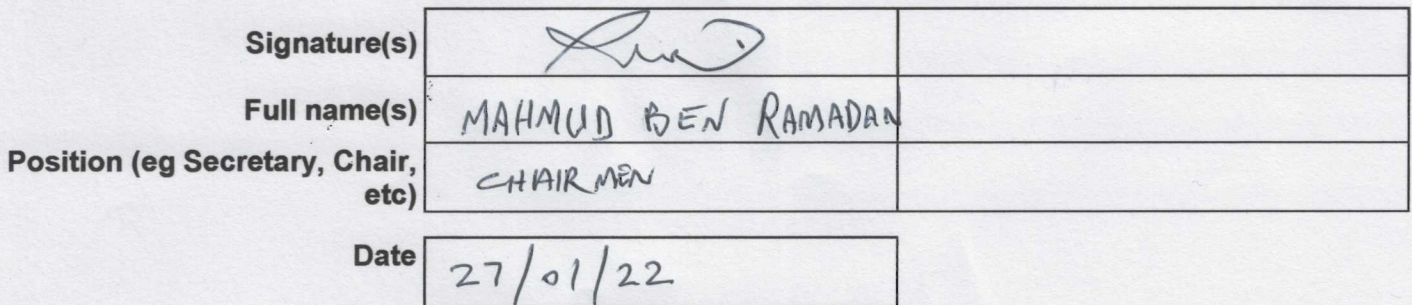 Signature(s)
Full name(s) MAHMUD BEN RAMADAN
Position (eg Secretary, Chair, etc) CHAIRMEN
Date 27/01/22